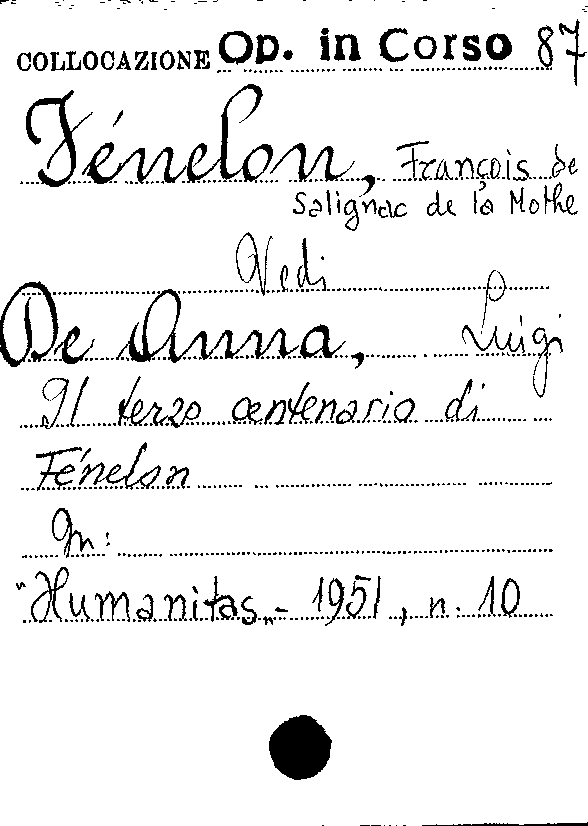 COLLOCAZIONE Op. in Corso 87
Fénelon, François de
Salignac de la Mothe
Vedi
De Anna, Luigi
Il terzo centenario di
Fénelon
In:
"Humanitas„ - 1951, n. 10